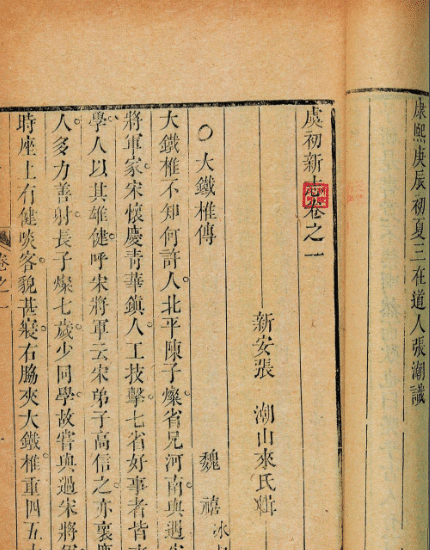 康熙庚辰初夏三在道人張潮識
虞初新志卷之一
新安張 潮山來氏輯
〇大鐵椎傳
魏 禧 冰
大鐵椎不知何許人。北平陳子燦省兄河南。與遇
將軍家。宋懷慶青華鎮人。工技擊。七省好事者皆
學。人以其雄健。呼宋將軍云。宋弟子高信之。亦懷慶
人。多力善射。長子燦七歲。少同學。故嘗與過宋將
時座上有健啖客。貌甚寢。右脇夾大鐵椎。重四五
卷之一